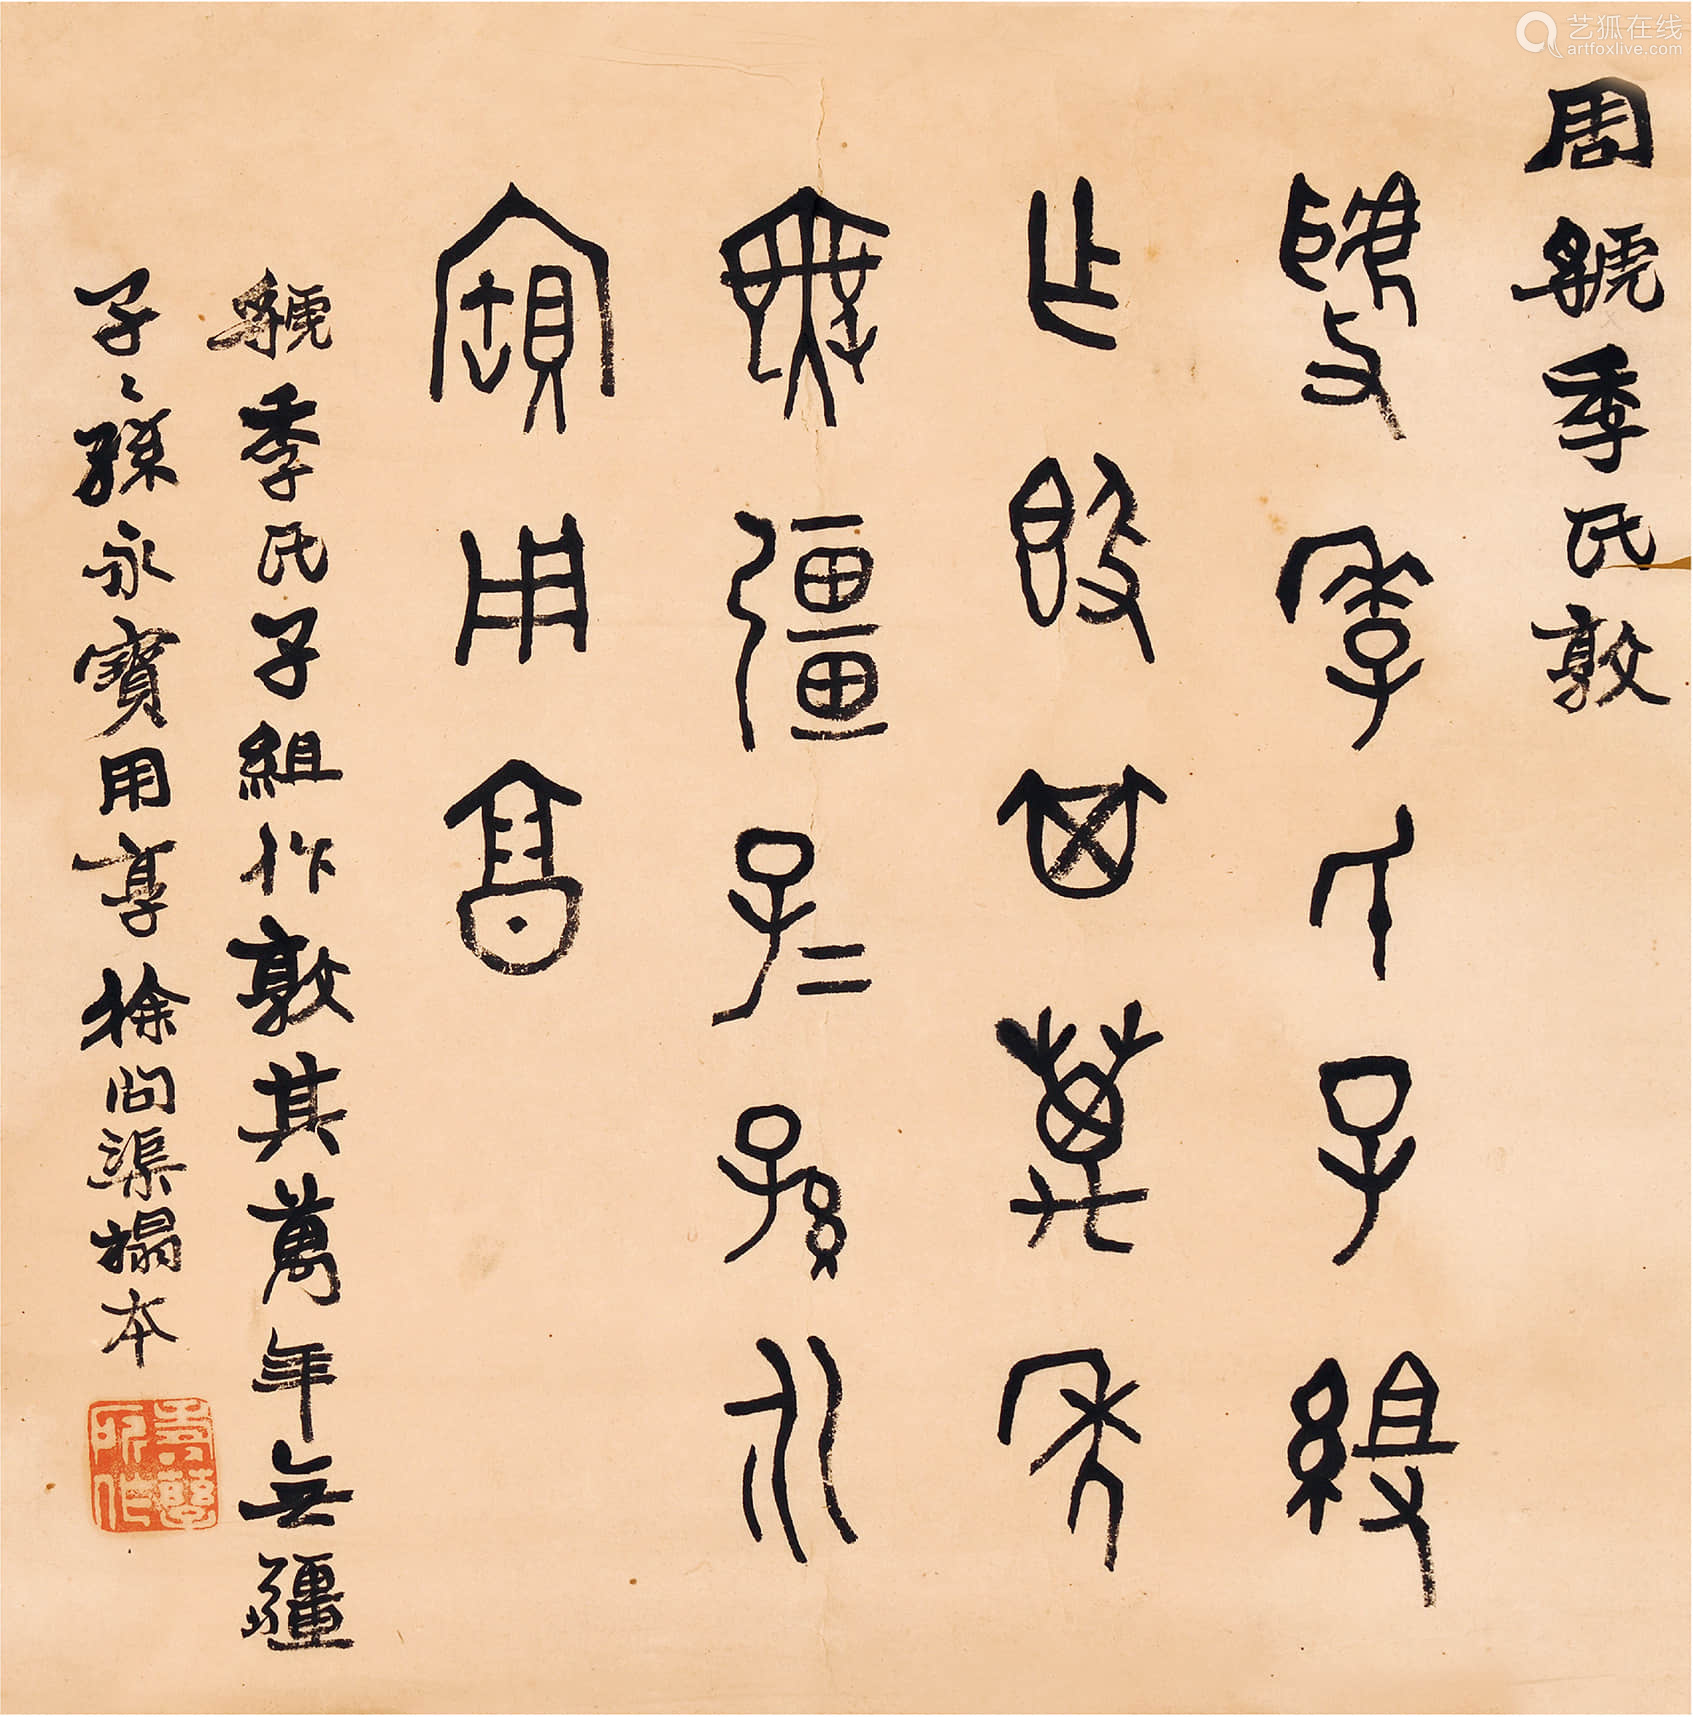 周虢季氏敦
虢季氏子組
乍𣪘其萬年
無彊子二孫永
寶用享
虢季氏子組作敦其萬年無疆
子〻孫永寶用享 徐問渠搨本
所作
艺狐在线
artfoxlive.com